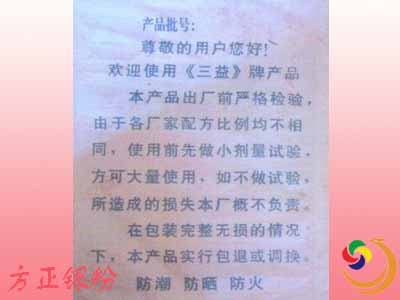 产品批号:
尊敬的用户您好!
欢迎使用《三益》牌产品
本产品出厂前严格检验,
由于各厂家配方比例均不相
同,使用前先做小剂量试验.
方可大量使用,如不做试验,
所造成的损失本厂概不负责.
在包装完整无损的情况
下,本产品实行包退或调换.
防潮 防晒 防火
方正银粉